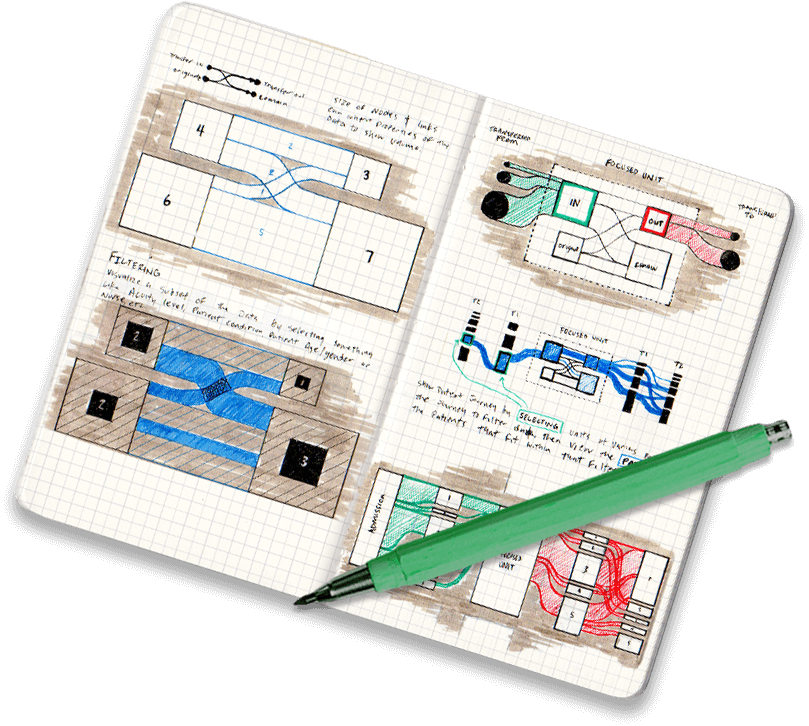 Transfer in
originate
Transfer out
Remain
SIZE OF NODES & links
can inherit properties of the
Data to show volume.
4
2
3
8
1
6
5
7
FILTERING
Visualize a subset of the Data by selecting something
like Acuity level, Patient condition Patient Age/gender or
Nurse, etc.
2
1
2
3
TRANSFERRED
FROM
FOCUSED UNIT
IN
OUT
TRANSFERRED
TO
Originate
REMAIN
F2
F1
FOCUSED UNIT
T1
T2
Show Patient Journey by SELECTING units at various
the Journey to filter down, then view the
the Patients that fit within that Filter
ADMISSION
1
UNIT
3
5
1
5